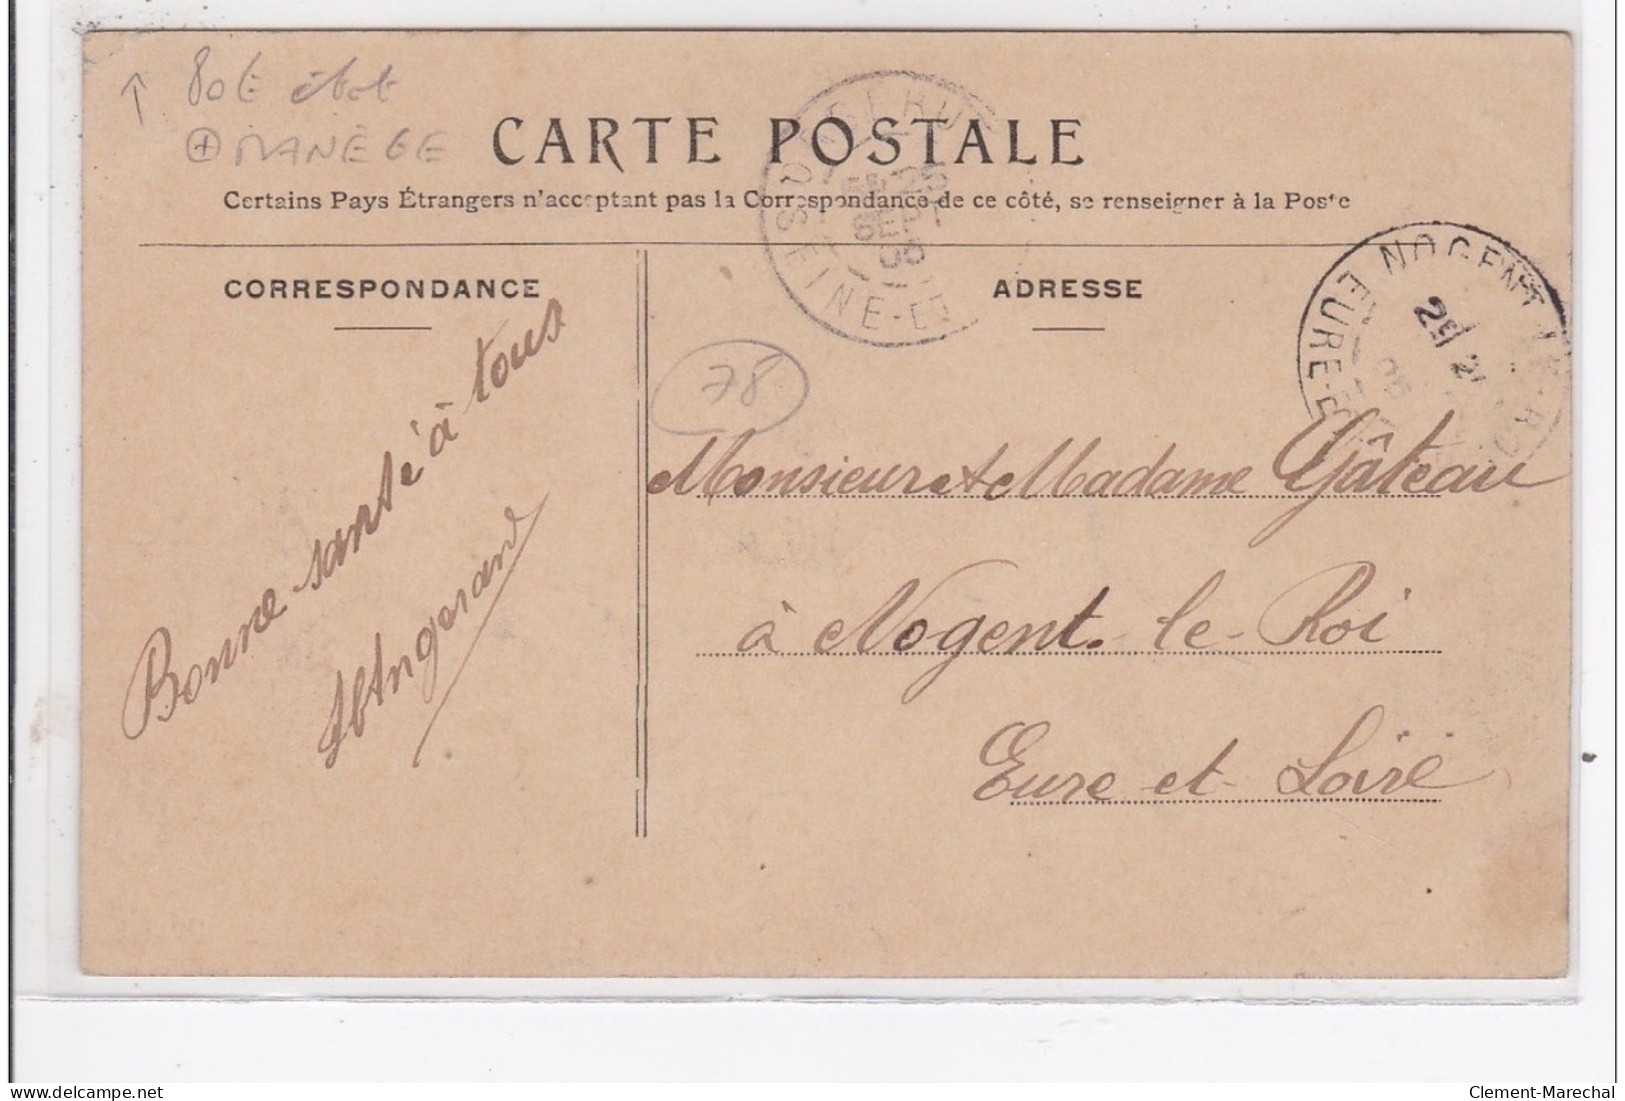 80€ état
⊕ MANÈGE
CARTE POSTALE
Certains Pays Étrangers n'acceptant pas la Correspondance de ce côté, se renseigner à la Poste
CORRESPONDANCE
ADRESSE
25
SEPT
SEINE-ET
NOGENT-LE-RO
EURE-E
25
78
Bonne santé à tous
Monsieur et Madame Gâteau
à Nogent-le-Roi
Eure et Loire
delcampe.net
Clement-Marechal